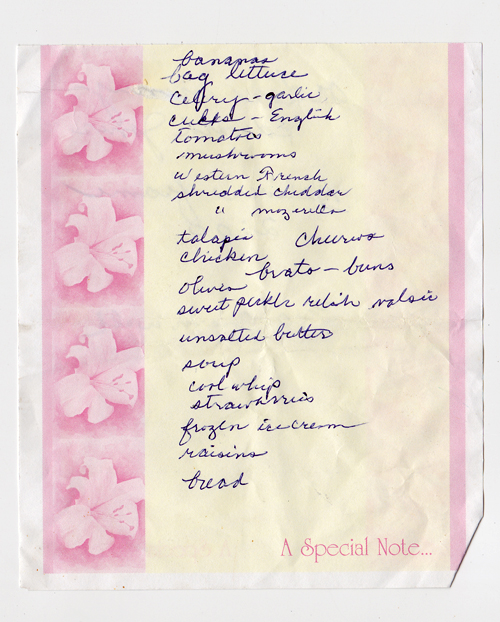 bananas
bag lettuce
celery - garlic
cukes - English
tomatoes
mushrooms
Western French
shredded cheddar
" mozerella
talapia Cheerios
chicken
brats - buns
olives
sweet pickle relish
unsalted butter
soup
cool whip
strawberries
frozen ice cream
raisins
bread
A Special Note...